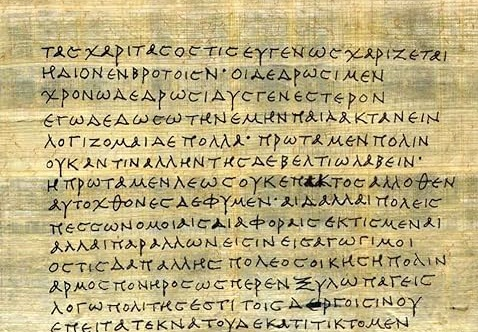 ΤΑϹΧΑΡΙΤΑϹΟϹΤΙϹΕΥΓΕΝΩϹΧΑΡΙΖΕΤΑΙ
ΗΔΙΟΝΕΝΒΡΟΤΟΙϹΙΝ·ΟΙΔΕΔΡΩϹΙΜΕΝ
ΧΡΟΝΩΔΕΔΡΩϹΙΔΥϹΓΕΝΕϹΤΕΡΟΝ
ΕΓΩΔΕΔΩϹΩΤΗΝΕΜΗΝΠΑΙΔΑΚΤΑΝΕΙΝ
ΛΟΓΙΖΟΜΑΙΔΕΠΟΛΛΑ·ΠΡΩΤΑΜΕΝΠΟΛΙΝ
ΟΥΚΑΝΤΙΝΑΛΛΗΝΤΗϹΔΕΒΕΛΤΙΩΛΑΒΕΙΝ·
ΗΠΡΩΤΑΜΕΝΛΕΩϹΟΥΚΕΠΑΚΤΟϹΑΛΛΟΘΕΝ
ΑΥΤΟΧΘΟΝΕϹΔΕΦΥΜΕΝ·ΑΙΔΑΛΛΑΙΠΟΛΕΙϹ
ΠΕϹϹΩΝΟΜΟΙΑΙϹΔΙΑΦΟΡΑΙϹΕΚΤΙϹΜΕΝΑΙ
ΑΛΛΑΙΠΑΡΑΛΛΩΝΕΙϹΙΝΕΙϹΑΓΩΓΙΜΟΙ
ΟϹΤΙϹΔΑΠΑΛΛΗϹΠΟΛΕΟϹΟΙΚΗϹΗΠΟΛΙΝ
ΑΡΜΟϹΠΟΝΗΡΟϹΩϹΠΕΡΕΝΞΥΛΩΠΑΓΕΙϹ
ΛΟΓΩΠΟΛΙΤΗϹΕϹΤΙΤΟΙϹΔΕΡΓΟΙϹΙΝΟΥ
ΕΠΕΙΤΑΤΕΚΝΑΤΟΥΔΕΚΑΤΙΤΙΚΤΟΜΕΝ